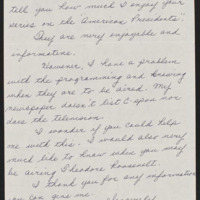 tell you how much I enjoy your
series on the American Presidents.
They are very enjoyable and
informative.
However, I have a problem
with the programming and knowing
when they are to be aired. My
newspaper doesn't list C-span nor
does the television.
I wonder if you could help
me with this. I would also very
much like to know when you may
be airing Theodore Roosevelt.
I thank you for any information
you can give me.